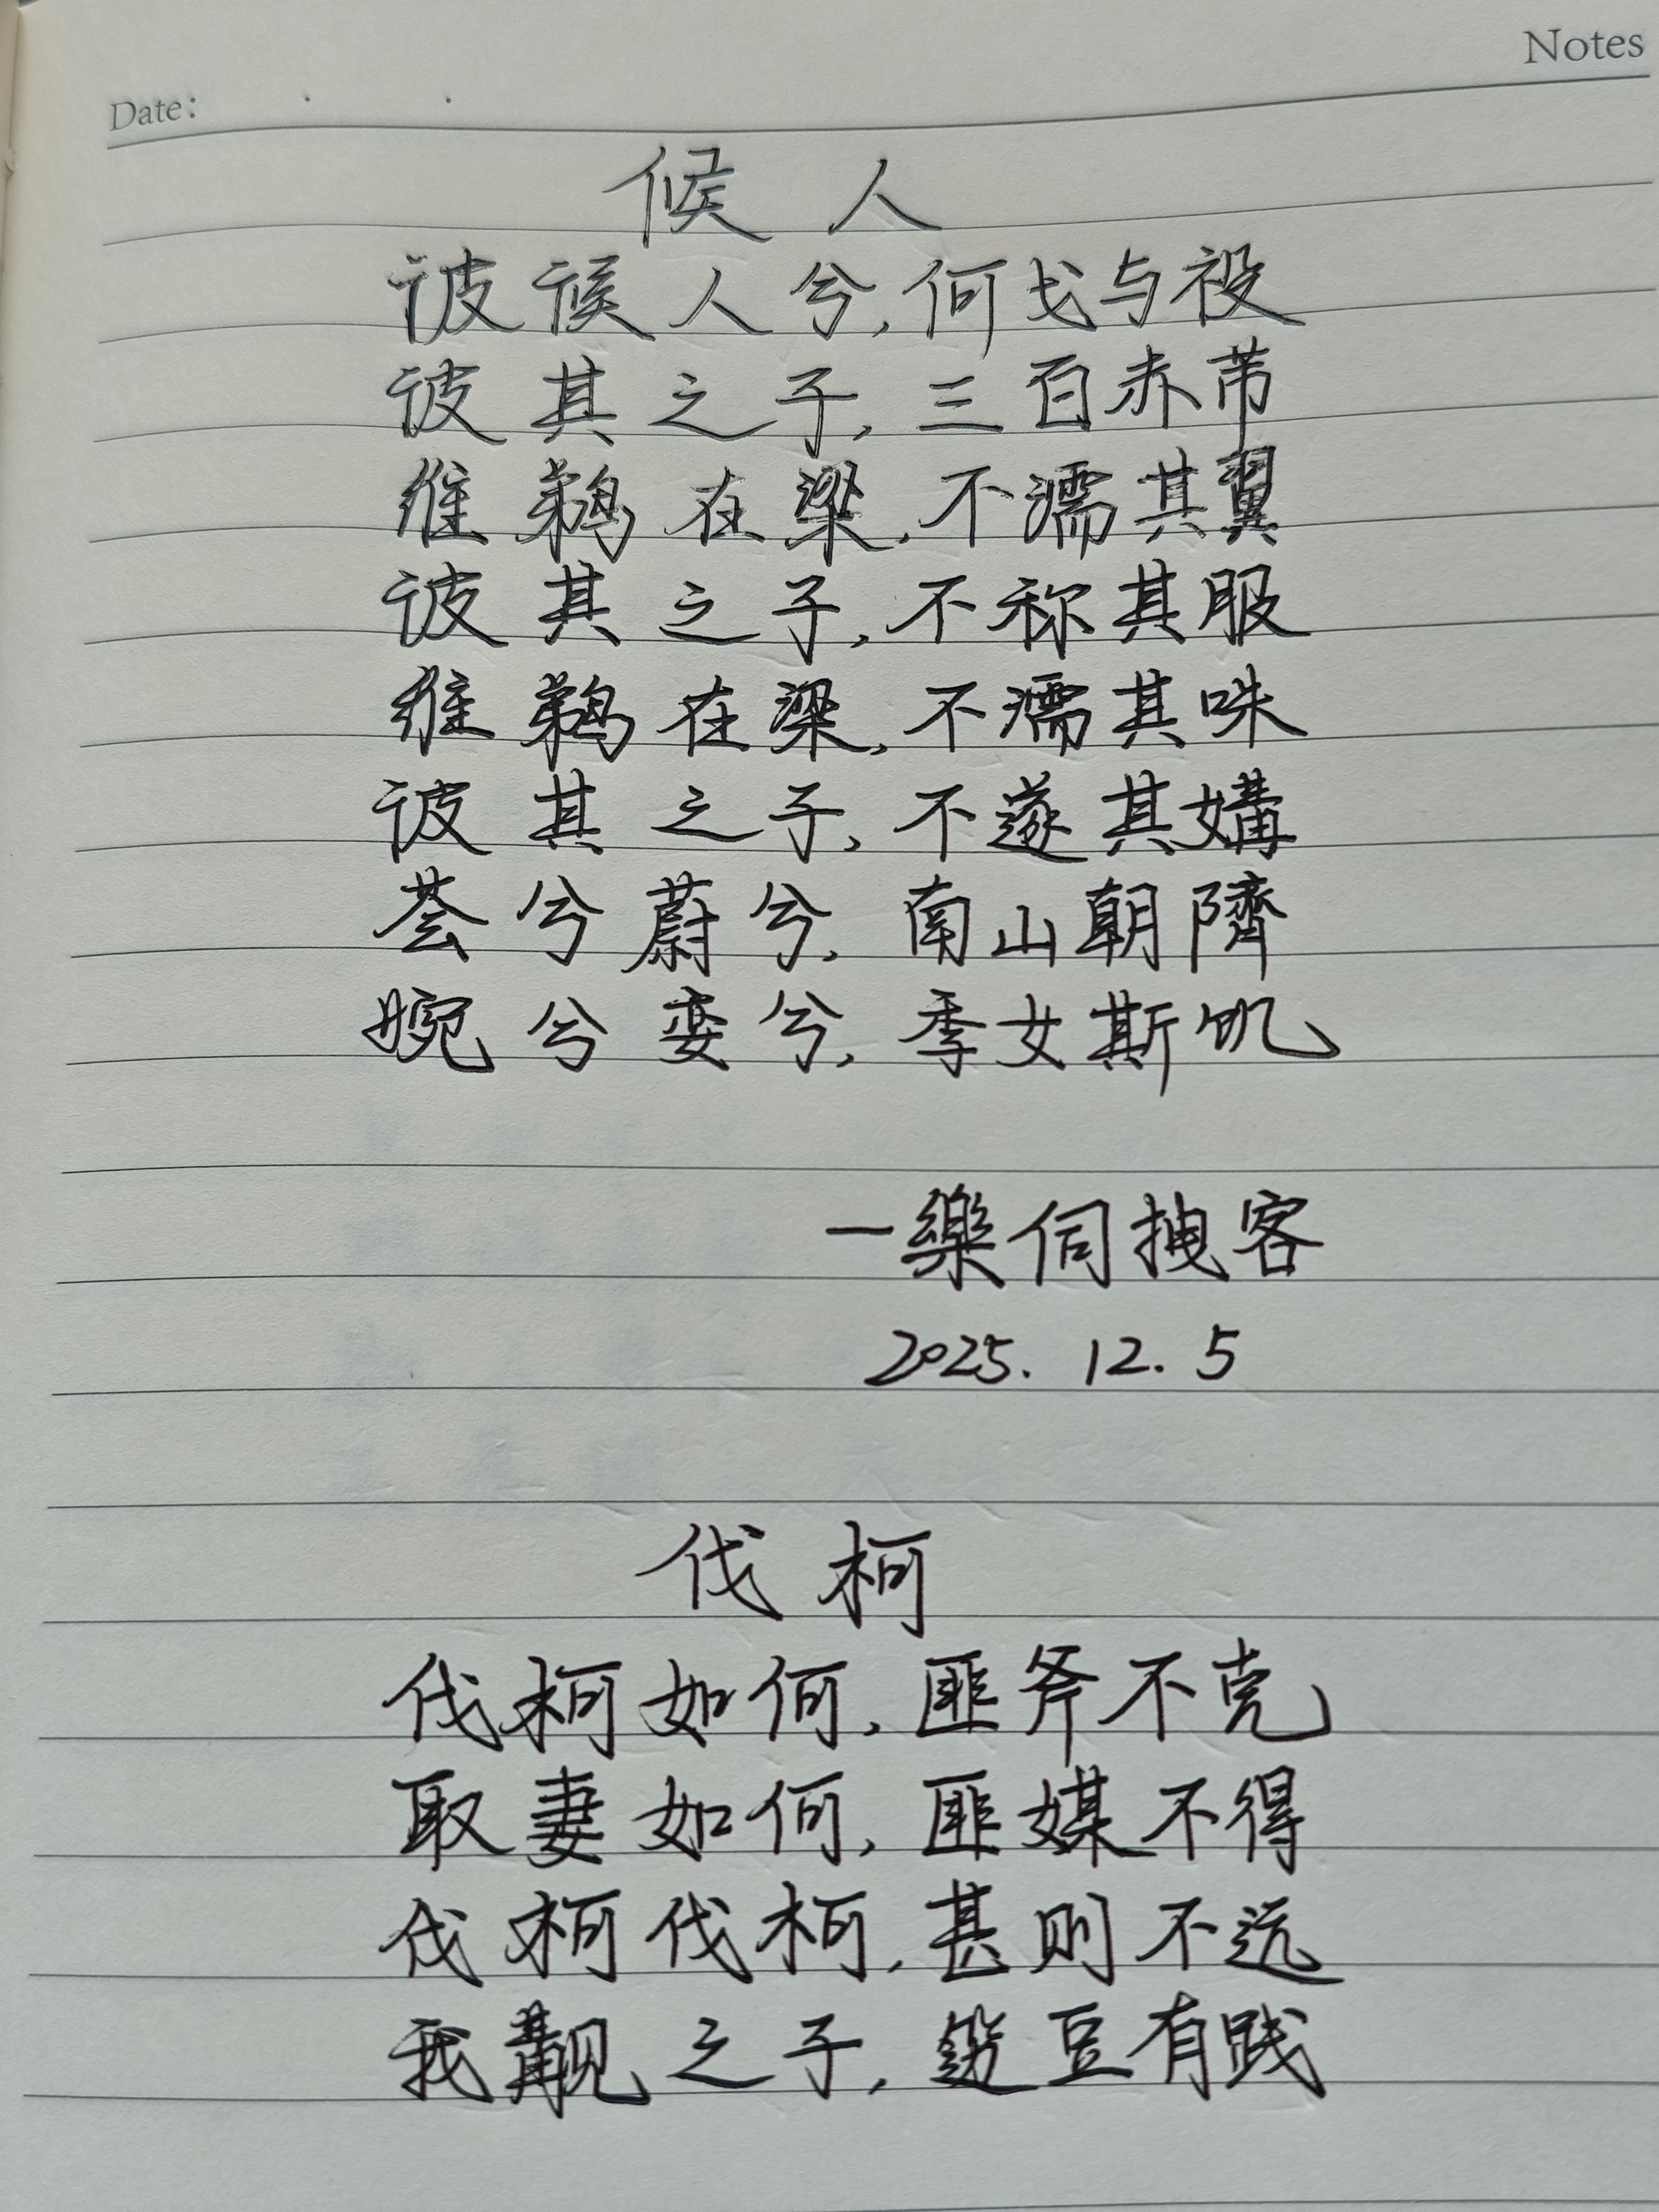 Notes
Date:
候人
彼候人兮,何戈与祋
彼其之子,三百赤芾
维鹈在梁,不濡其翼
彼其之子,不称其服
维鹈在梁,不濡其咮
彼其之子,不遂其媾
荟兮蔚兮,南山朝隮
婉兮娈兮,季女斯饥
一樂伺拽客
2025.12.5
伐柯
伐柯如何,匪斧不克
取妻如何,匪媒不得
伐柯伐柯,其则不远
我觏之子,笾豆有践